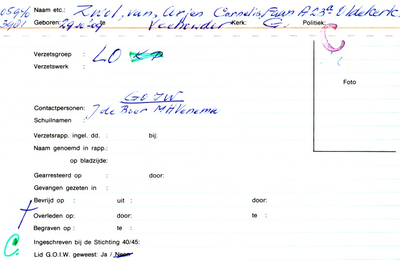 05946 Naam etc.: Zwol, van, Arjen Cornelis A 23a Oldekerk
Geboren: te Veehouder Kerk: G. Politiek: C
Verzetsgroep : LO
Verzetswerk :
Foto
GOIW
Contactpersonen: J de Boer MHVenema
Schuilnamen :
Verzetsrapp. ingel. dd. : bij:
Naam genoemd in rapp.:
op bladzijde:
Gearresteerd op : door:
Gevangen gezeten in :
Bevrijd op : uit : door:
Overleden op: door: te :
Begraven op : te :
C. Ingeschreven bij de Stichting 40/45:
Lid G.O.I.W. geweest: Ja / Neen